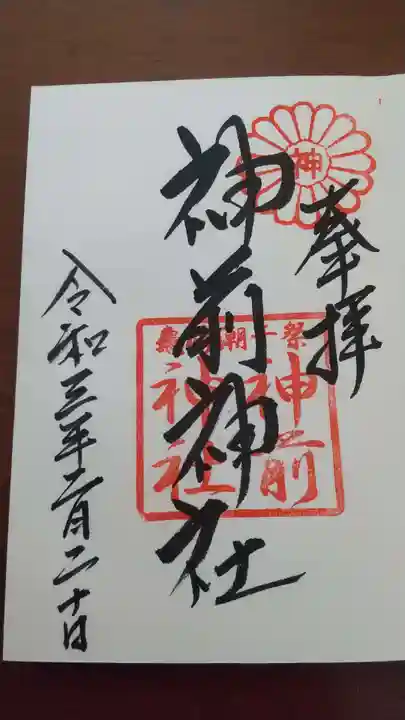 奉拝
神
神前神社
神前
神社
令和三年二月二十日